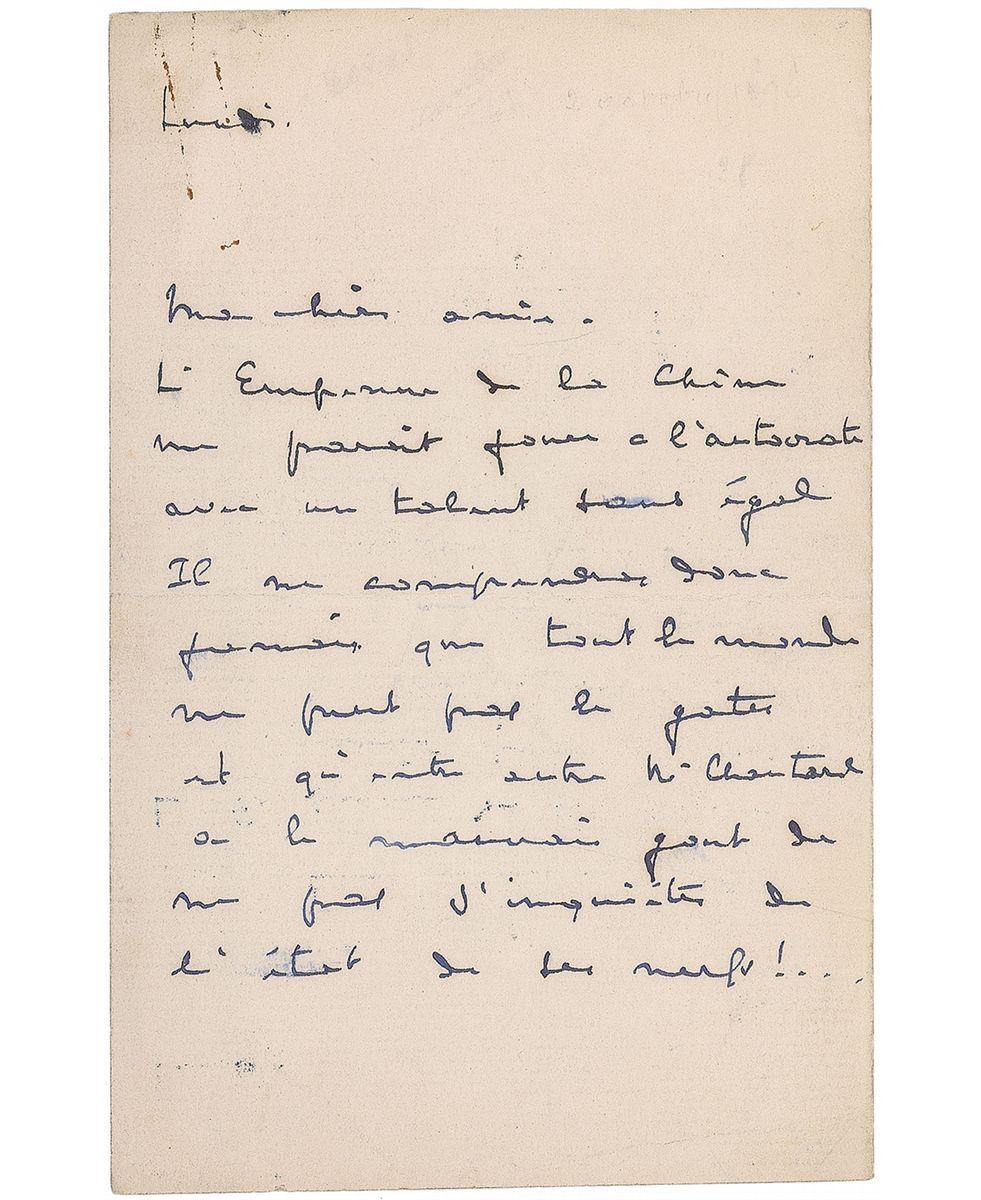 Lundi.
Ma chère amie.
L'Empereur de la Chine
me paraît jouer a l'autocrate
avec un talent sans égal
Il ne comprendra donc
jamais que tout le monde
ne peut pas le gater
et qu'entre autre Mr Chautard
a le mauvais gout de
ne pas s'inquiéter de
l'état de ses nerfs!...